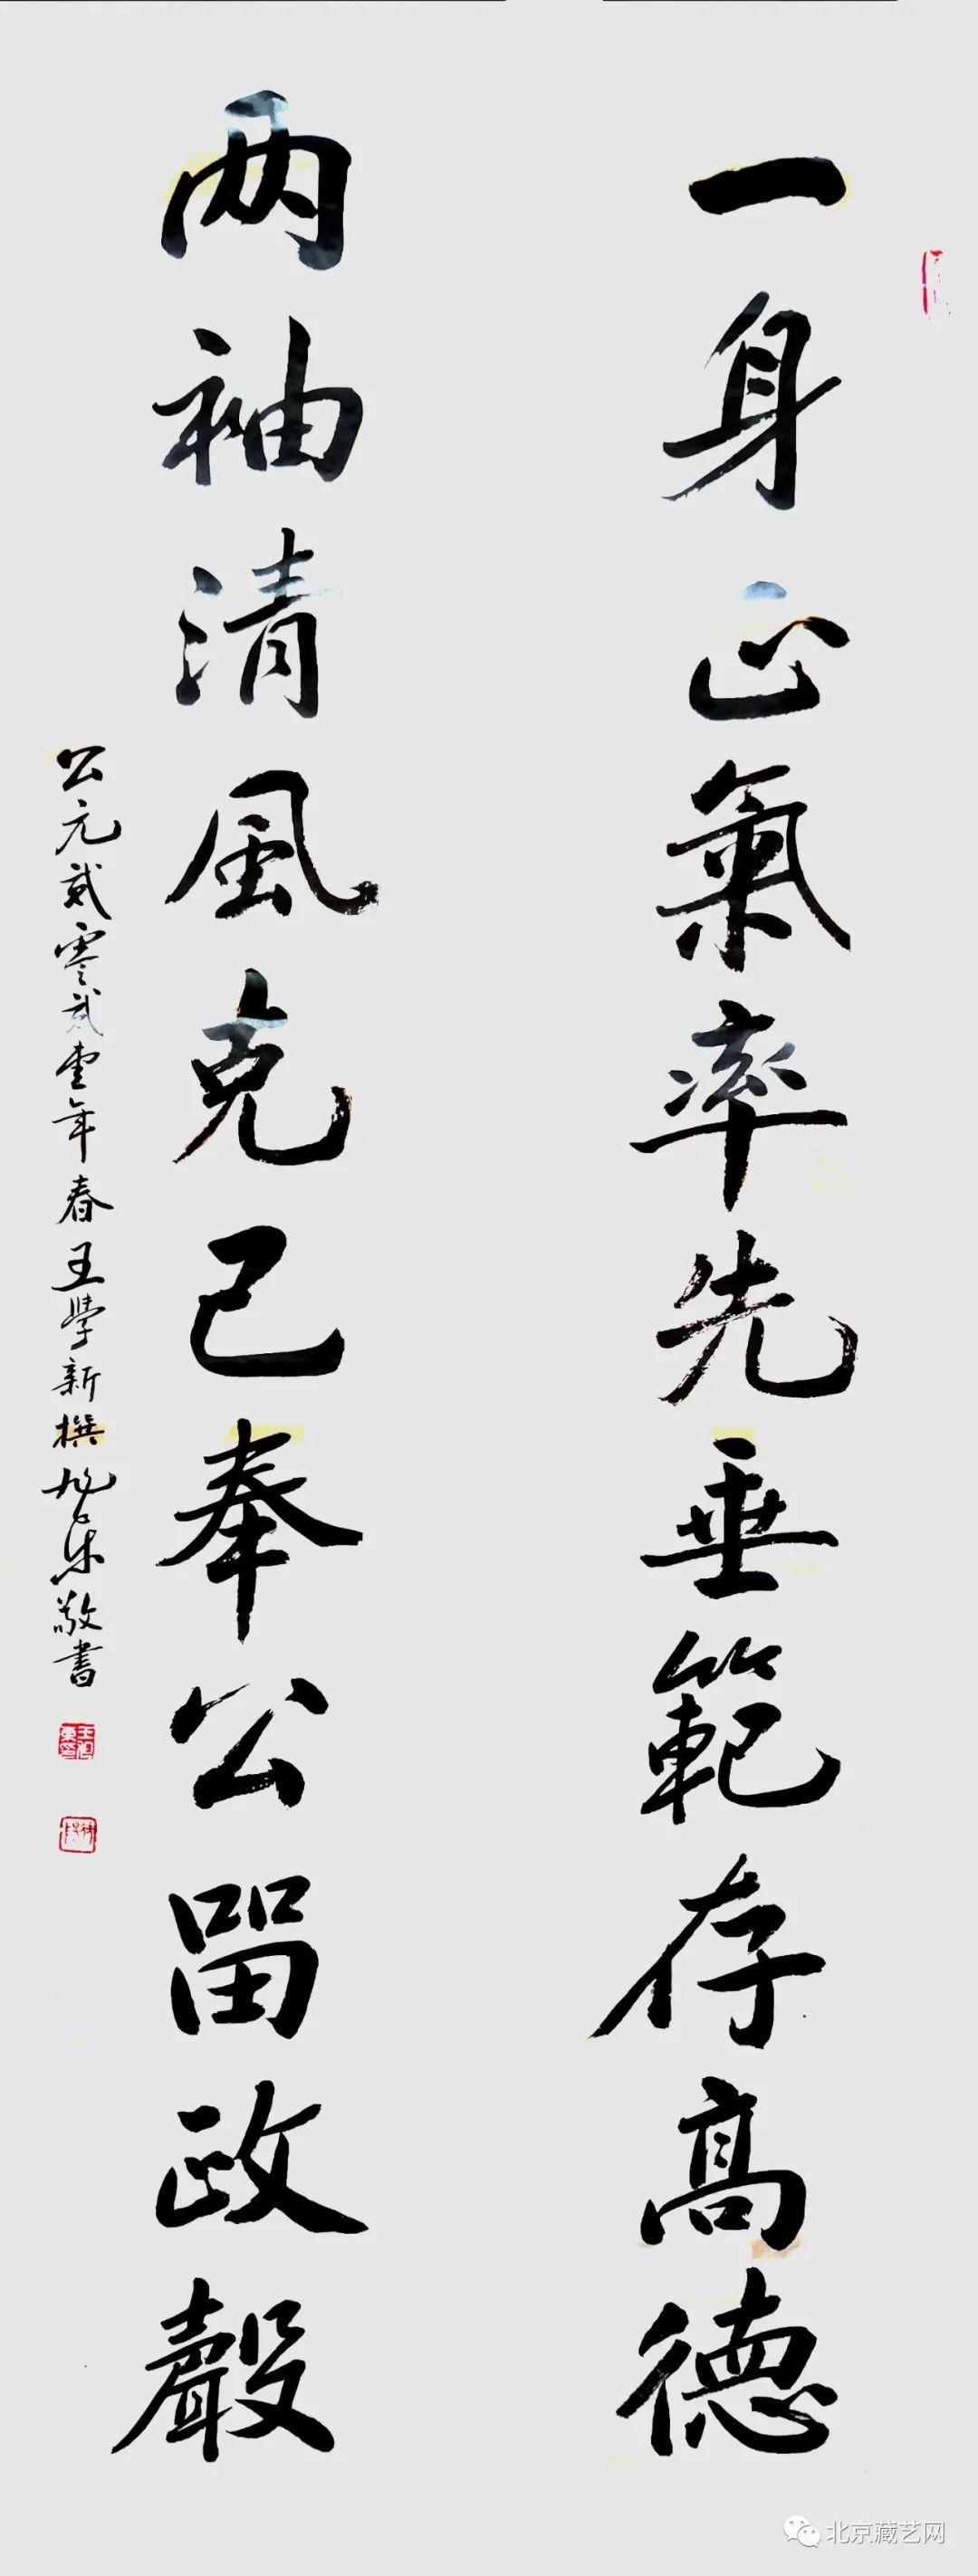 一身正氣率先垂範存高德
两袖清風克己奉公留政聲
公元貳零貳壹年春王學新撰旭东敬書
北京藏艺网